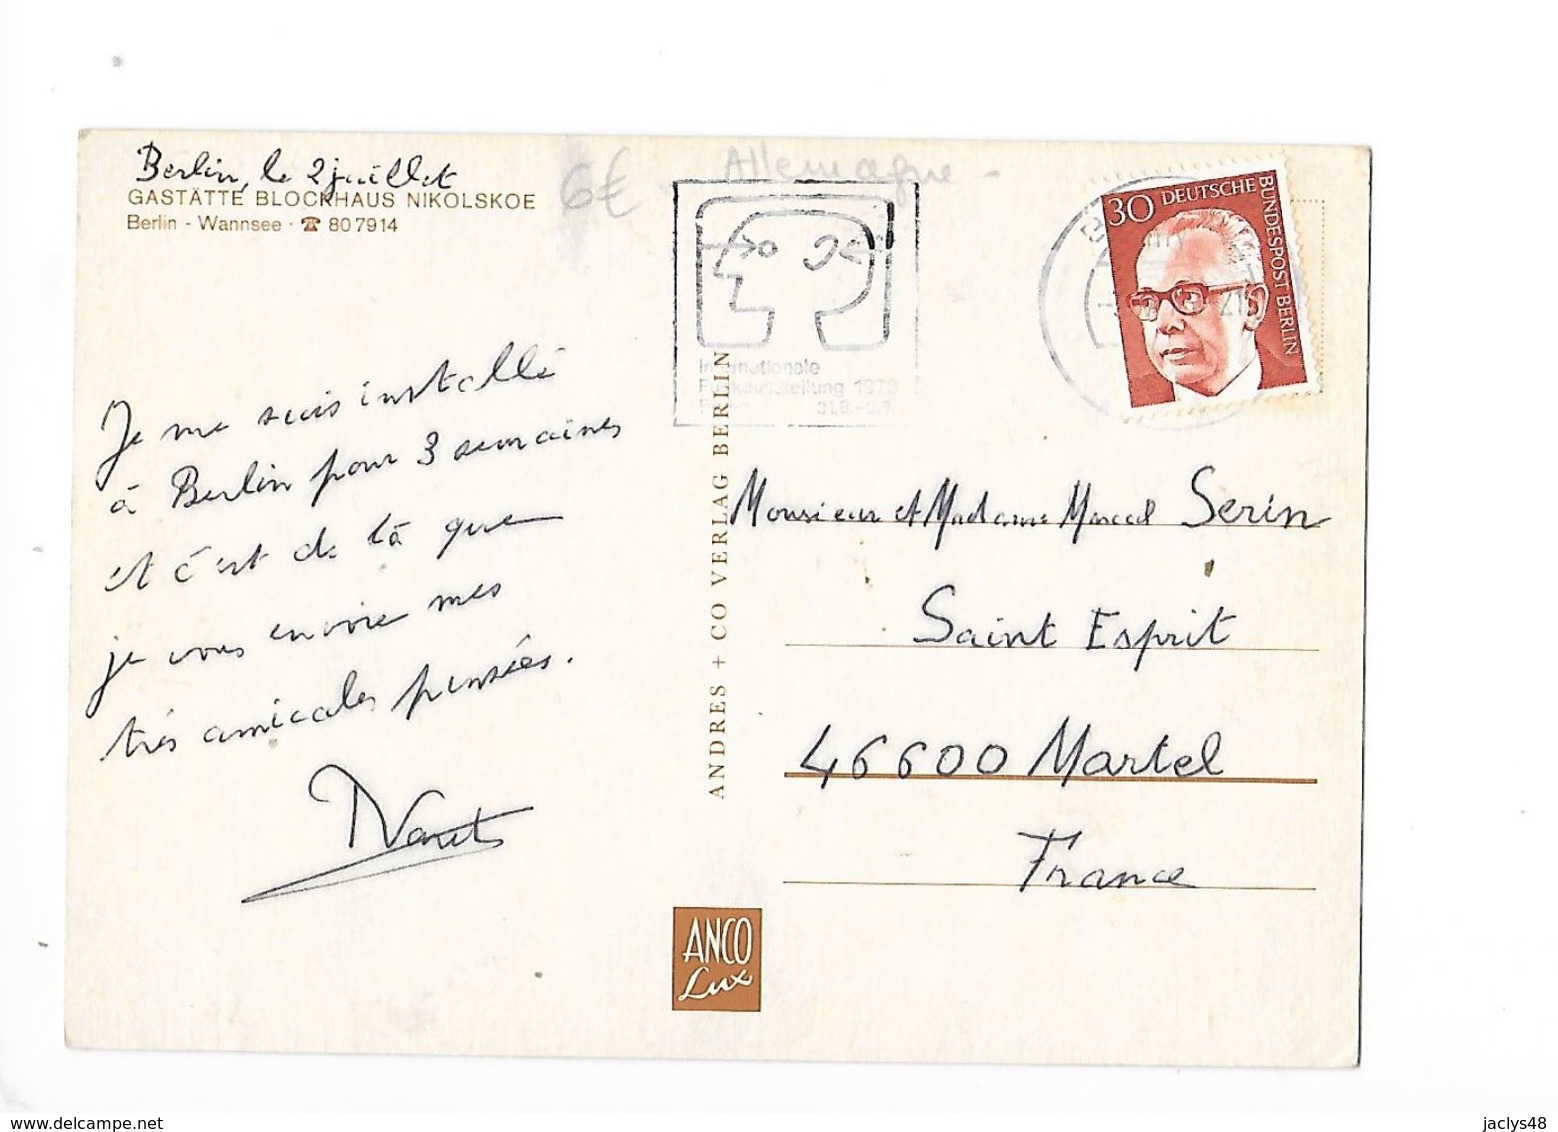 Berlin, le 2 juillet
GASTÄTTE BLOCKHAUS NIKOLSKOE
Berlin - Wannsee · ☎ 80 7914
6€ - Allemagne -
Je me suis installé
à Berlin pour 3 semaines
et c'est de là que
je vous envoie mes
très amicales pensées.
ANDRES + CO VERLAG BERLIN
ANCO
Lux
Internationale
Funkausstellung 1973
31.8.-9.9.
30 DEUTSCHE BUNDESPOST BERLIN
Monsieur et Madame Marcel Serin
Saint Esprit
46600 Martel
France
jaclys48